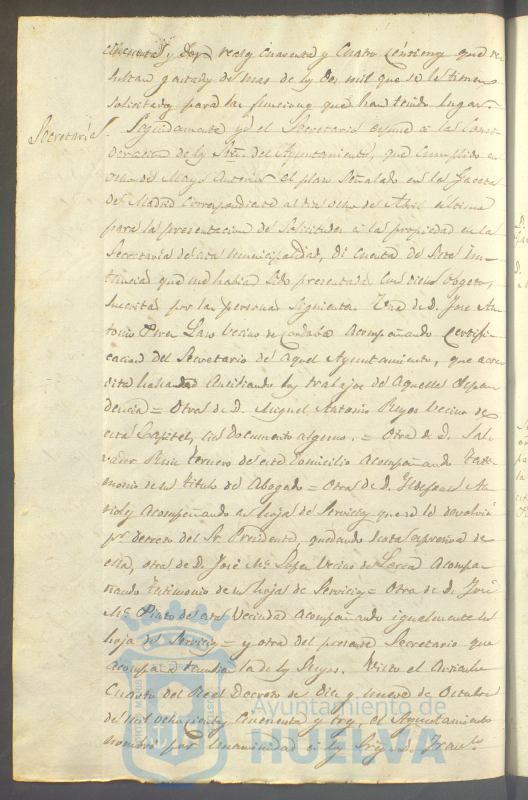 cincuenta y dos reales y cuarenta y cuatro centims que re
sultan gastados de mas de los dos mil que se letimaron
solicitados para las funciones que han tenido lugar.
Secretaría.
Seguidamente yo el Secretario espuse a la Consi
deracion de los Sres. del Ayuntamiento, que cumplido en
ocho de Mayo anterior el plazo señalado en la Gaceta
de Madrid correspondiente al dia ocho de Abril ultimo
para la presentacion de Solicitudes a la propiedad en la
Secretaria de esta Municipalidad, di cuenta de siete Ins
tancias que me habian sido presentadas con dicho objeto,
suscritas por las personas siguientes. Una de D. Jose An
tonio Perez Laso vecino de Cordoba acompañando certifi
cacion del Secretario de aquel Ayuntamiento, que acre
dita hallarse auxiliando los trabajos de aquella depen
dencia = Otra de D. Miguel Antonio Reyes vecino de
esta Capital, sin documento alguno. = Otra de D. Sal
vador Ruiz ternero de este domicilio acompañando testi
monio de su titulo de Abogado = Otra de D. Ildefonso
acompañando su hoja de Servicios que se le devolvió
pr. decreto del Sr. Presidente, quedando nota espresiva de
ella, otra de D. José Ma. vecino de Lorca acompa
ñando testimonio de su hoja de Servicios = Otra de D. José
Ma. Pinto de esta vecindad acompañando igualmente su
hoja de Servicios = y otra del presente Secretario que
acompaña tambien la de los suyos. Visto el Articulo
Cuarto del Real Decreto de diez y nueve de Octubre
de mil ochocientos cincuenta y tres, el Ayuntamiento
nombró por unanimidad a los Sres. D. Franco.
Ayuntamiento de
HUELVA